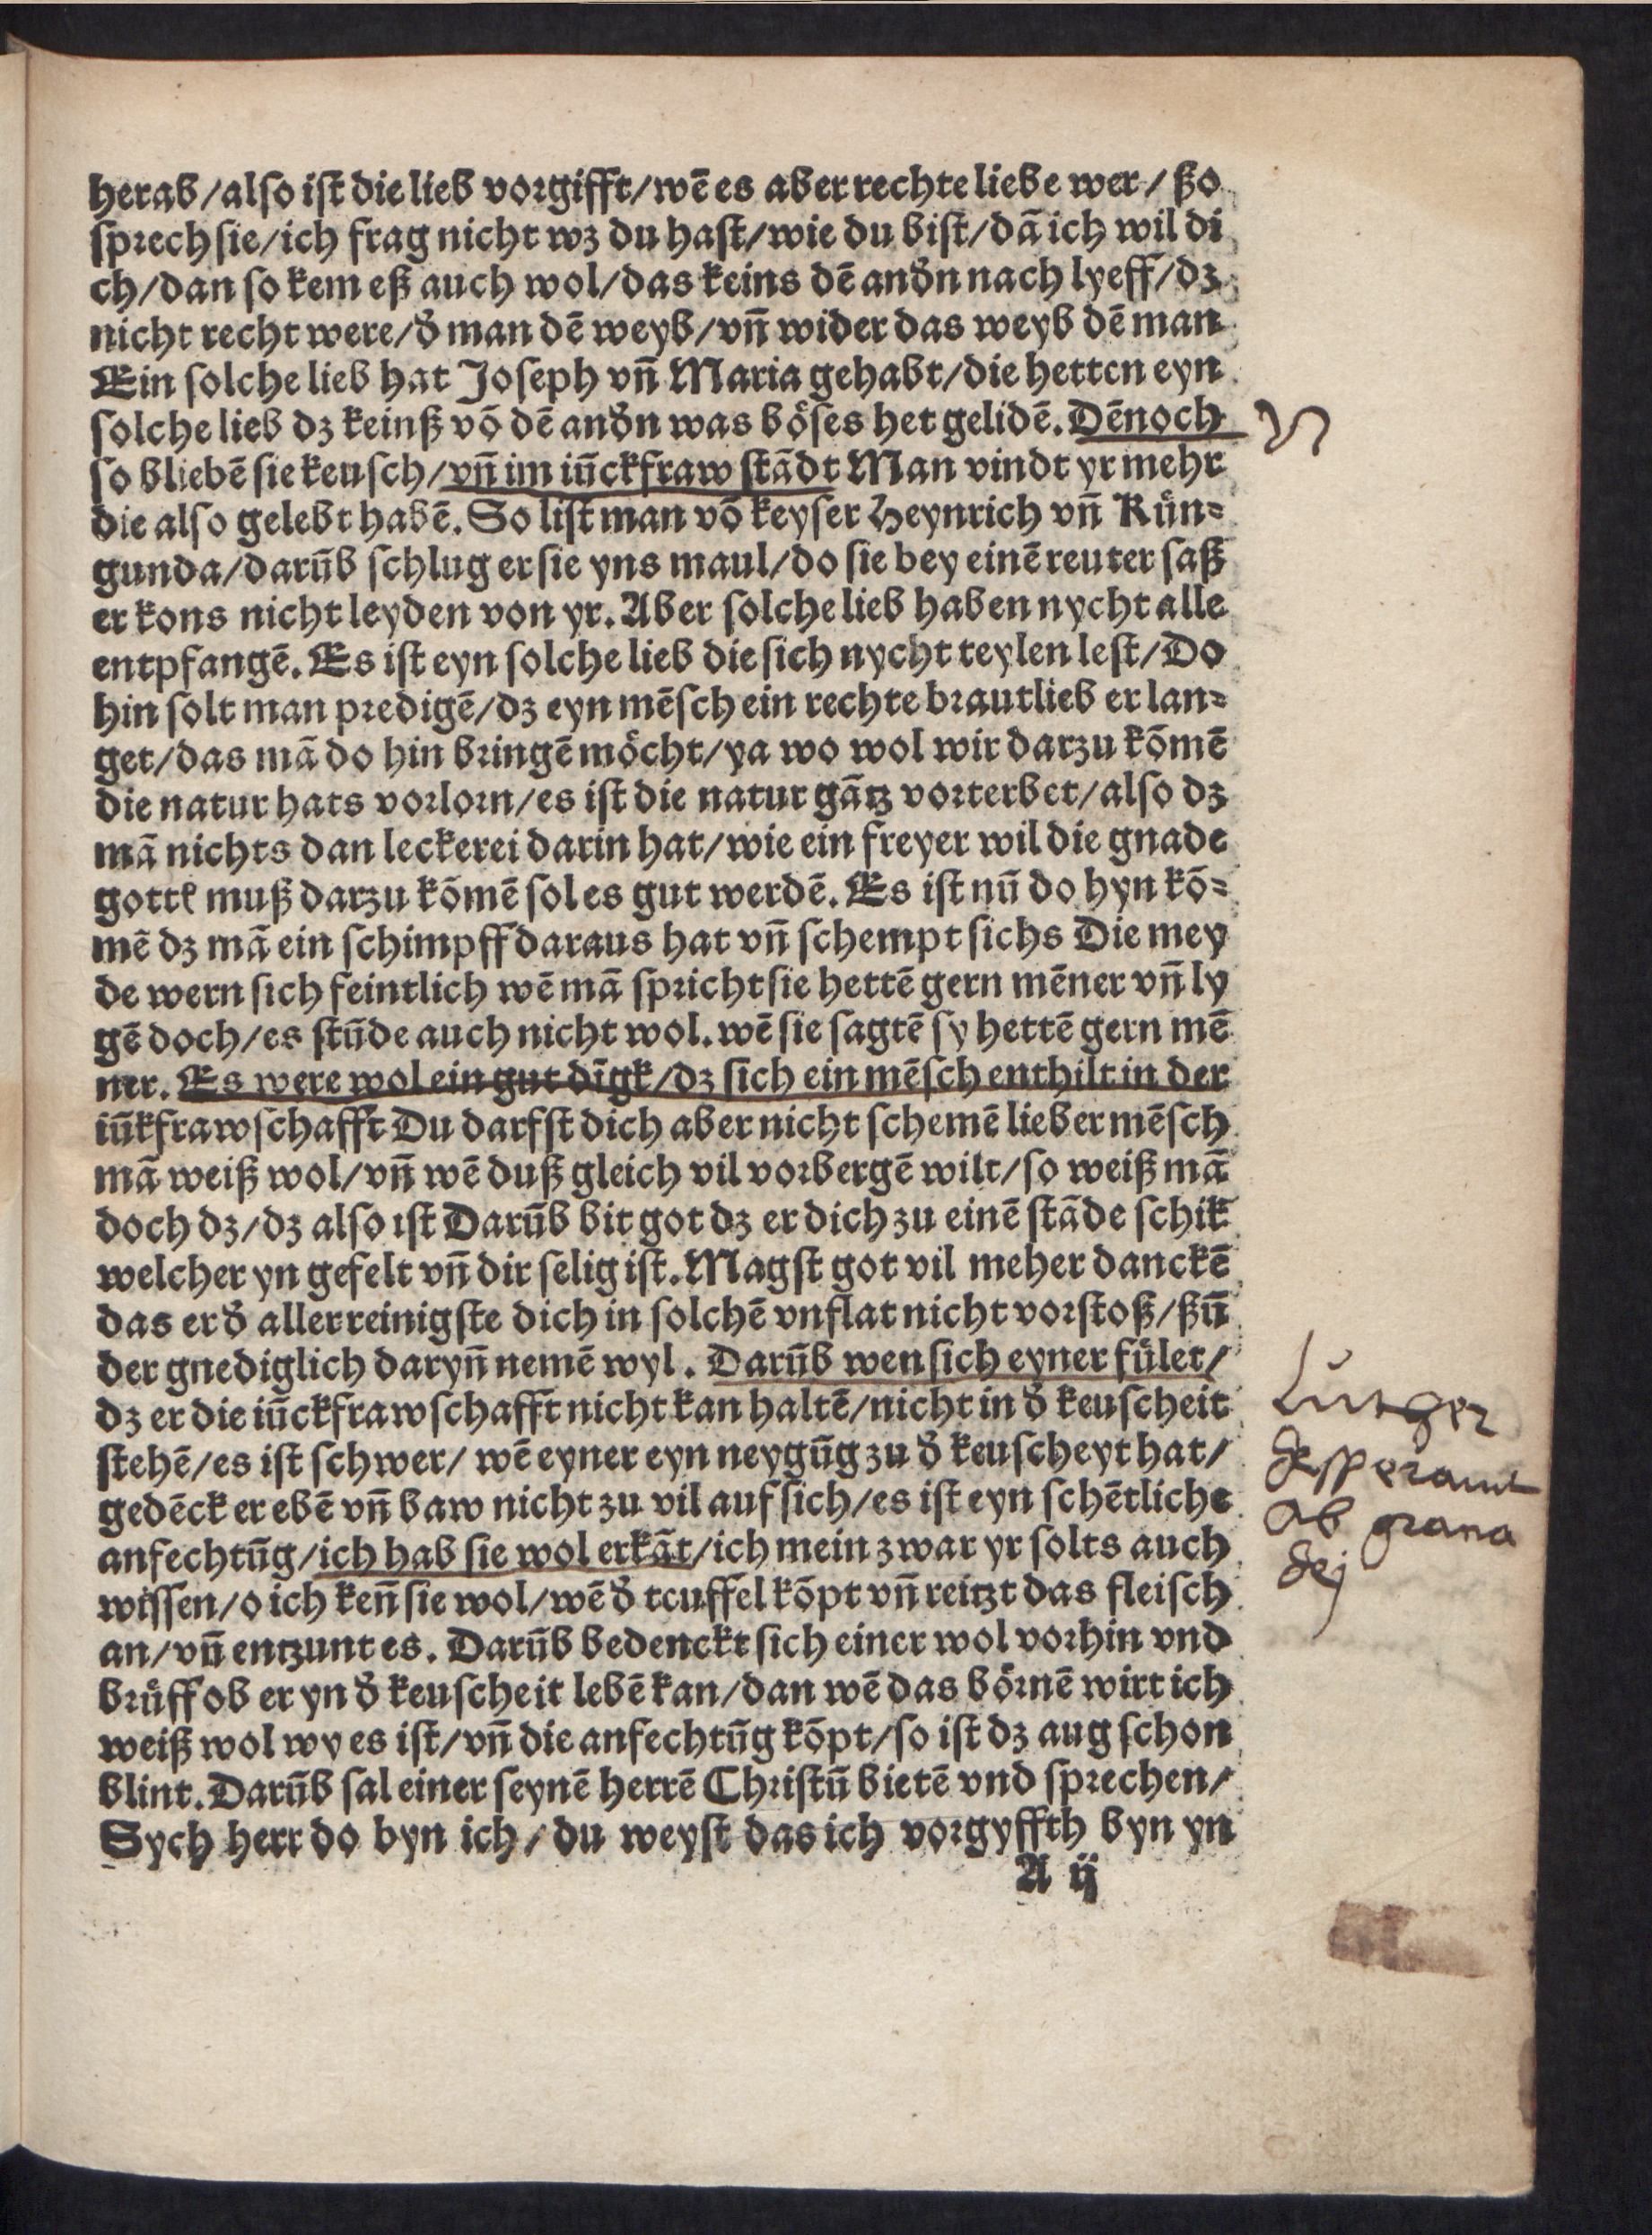 herab/also ist die lieb vorgifft/wē es aber rechte liebe wer/ ßo
sprech sie/ich frag nicht wz du hast/wie du bist/dā ich wil di
ch/dan so kem eß auch wol/das keins dē andn nach lyeff/dz
nicht recht were/d̆ man dē weyb/vn̄ wider das weyb dē man
Ein solche lieb hat Joseph vn̄ Maria gehabt/die hetten eyn
solche lieb dz keinß vō dē and̆n was böses het gelidē. Dēnoch
so bliebē sie keusch/vn̄ im iūckfraw stādt Man vindt yr mehr
die also gelebt habē. So list man vō keyser Heynrich vn̄ Kün=
gunda/darūb schlug er sie yns maul/do sie bey einē reuter saß
er kons nicht leyden von yr. Aber solche lieb haben nycht alle
entpfangē. Es ist eyn solche lieb die sich nycht teylen lest/Do
hin solt man predigē/dz eyn mēsch ein rechte brautlieb er lan=
get/das mā do hin bringē möcht/ya wo wol wir darzu kōmē
die natur hats vorlorn/es ist die natur gātz vorterbet/also dz
mā nichts dan leckerei darin hat/wie ein freyer wil die gnade
gottꝭ muß darzu kōmē sol es gut werdē. Es ist nū do hyn kō=
mē dz mā ein schimpff daraus hat vn̄ schempt sichs Die mey
de wern sich feintlich wē mā spricht sie hettē gern mēner vn̄ ly
gē doch/es stūde auch nicht wol. wē sie sagtē sy hettē gern mē
ner. Es were wol ein gut dīgk/dz sich ein mēsch enthilt in der
iūkfrawschafft Du darfst dich aber nicht schemē lieber mēsch
mā weiß wol/vn̄ wē duß gleich vil vorbergē wilt/so weiß mā
doch dz/dz also ist Darūb bit got dz er dich zu einē stāde schik
welcher yn gefelt vn̄ dir selig ist. Magst got vil meher danckē
das er d̆ aller reinigste dich in solchē vnflat nicht vorstoß/ßū
der gnediglich daryn̄ nemē wyl. Darūb wen sich eyner fület/
dz er die iūckfrawschafft nicht kan haltē/nicht in d̆ keuscheit
stehē/es ist schwer/ wē eyner eyn neygūg zu d̆ keuscheyt hat/
gedēck er ebē vn̄ baw nicht zu vil auf sich/es ist eyn schētliche
anfechtūg/ich hab sie wol erkāt/ich mein zwar yr solts auch
wissen/o ich ken̄ sie wol/wē d̆ teuffel kōpt vn̄ reitzt das fleisch
an/vn̄ entzunt es. Darūb bedenckt sich einer wol vorhin vnd
brüff ob er yn d̆ keuscheit lebē kan/dan wē das börnē wirt ich
weiß wol wy es ist/vn̄ die anfechtūg kōpt/so ist dz aug schon
blint. Darūb sal einer seynē herrē Christū bietē vnd sprechen/
Sych herr do byn ich/du weyst das ich vorgyffth byn yn
A ij
Luther
desperauit
ab gratia
dej